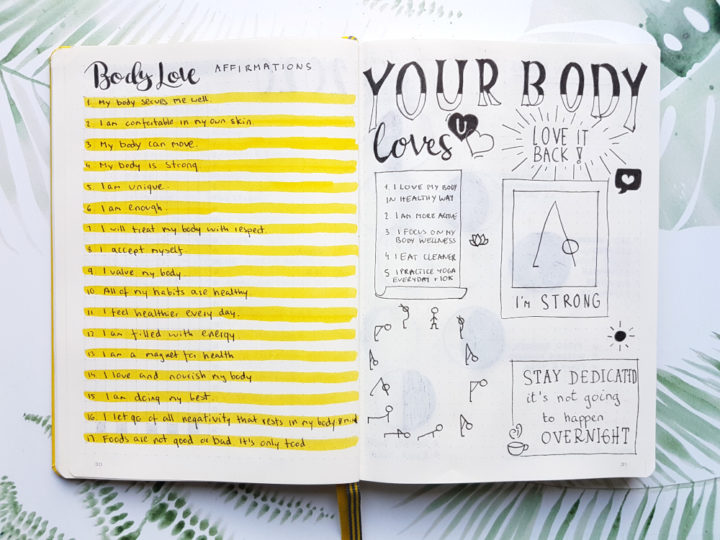 Body Love AFFIRMATIONS
1. My body serves me well.
2. I am comfortable in my own skin
3. My body can move.
4. My body is strong
5. I am unique.
6. I am enough.
7. I will treat my body with respect.
8. I accept myself.
9. I value my body.
10. All of my habits are healthy.
11. I feel healthier every day.
12. I am filled with energy.
13. I am a magnet for health
14. I love and nourish my body
15. I am doing my best.
16. I let go of all negativity that rests in my body & mind
17. Foods are not good or bad. It's only food
30
YOUR BODY
loves U
LOVE IT
BACK!
1. I LOVE MY BODY
IN HEALTHY WAY
2 I AM MORE ACTIVE
3 I FOCUS ON MY
BODY WELLNESS
4 I EAT CLEANER
5 I PRACTICE YOGA
EVERYDAY + 10K
I'm STRONG
STAY DEDICATED
it's not going
to happen
OVERNIGHT
31